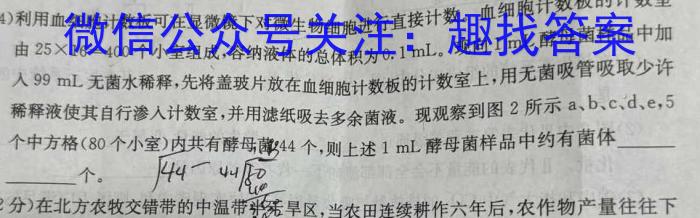 4)利用血细胞计数板可在显微镜下对微生物细胞进行直接计数。血细胞计数板的计数室
微信公众号关注：趣找答案
由25×16=400个小室组成,容纳液体的总体积为0.1mL。现向1mL酵母菌样品中加
入99 mL无菌水稀释,先将盖玻片放在血细胞计数板的计数室上,用无菌吸管吸取少许
稀释液使其自行渗入计数室,并用滤纸吸去多余菌液。现观察到图2所示a、b、c、d、e,5
个中方格(80个小室)内共有酵母菌44个,则上述1 mL酵母菌样品中约有菌体
个。
44 44
2分)在北方农牧交错带的中温带半干旱区,当农田连续耕作六年后,农作物产量往往下